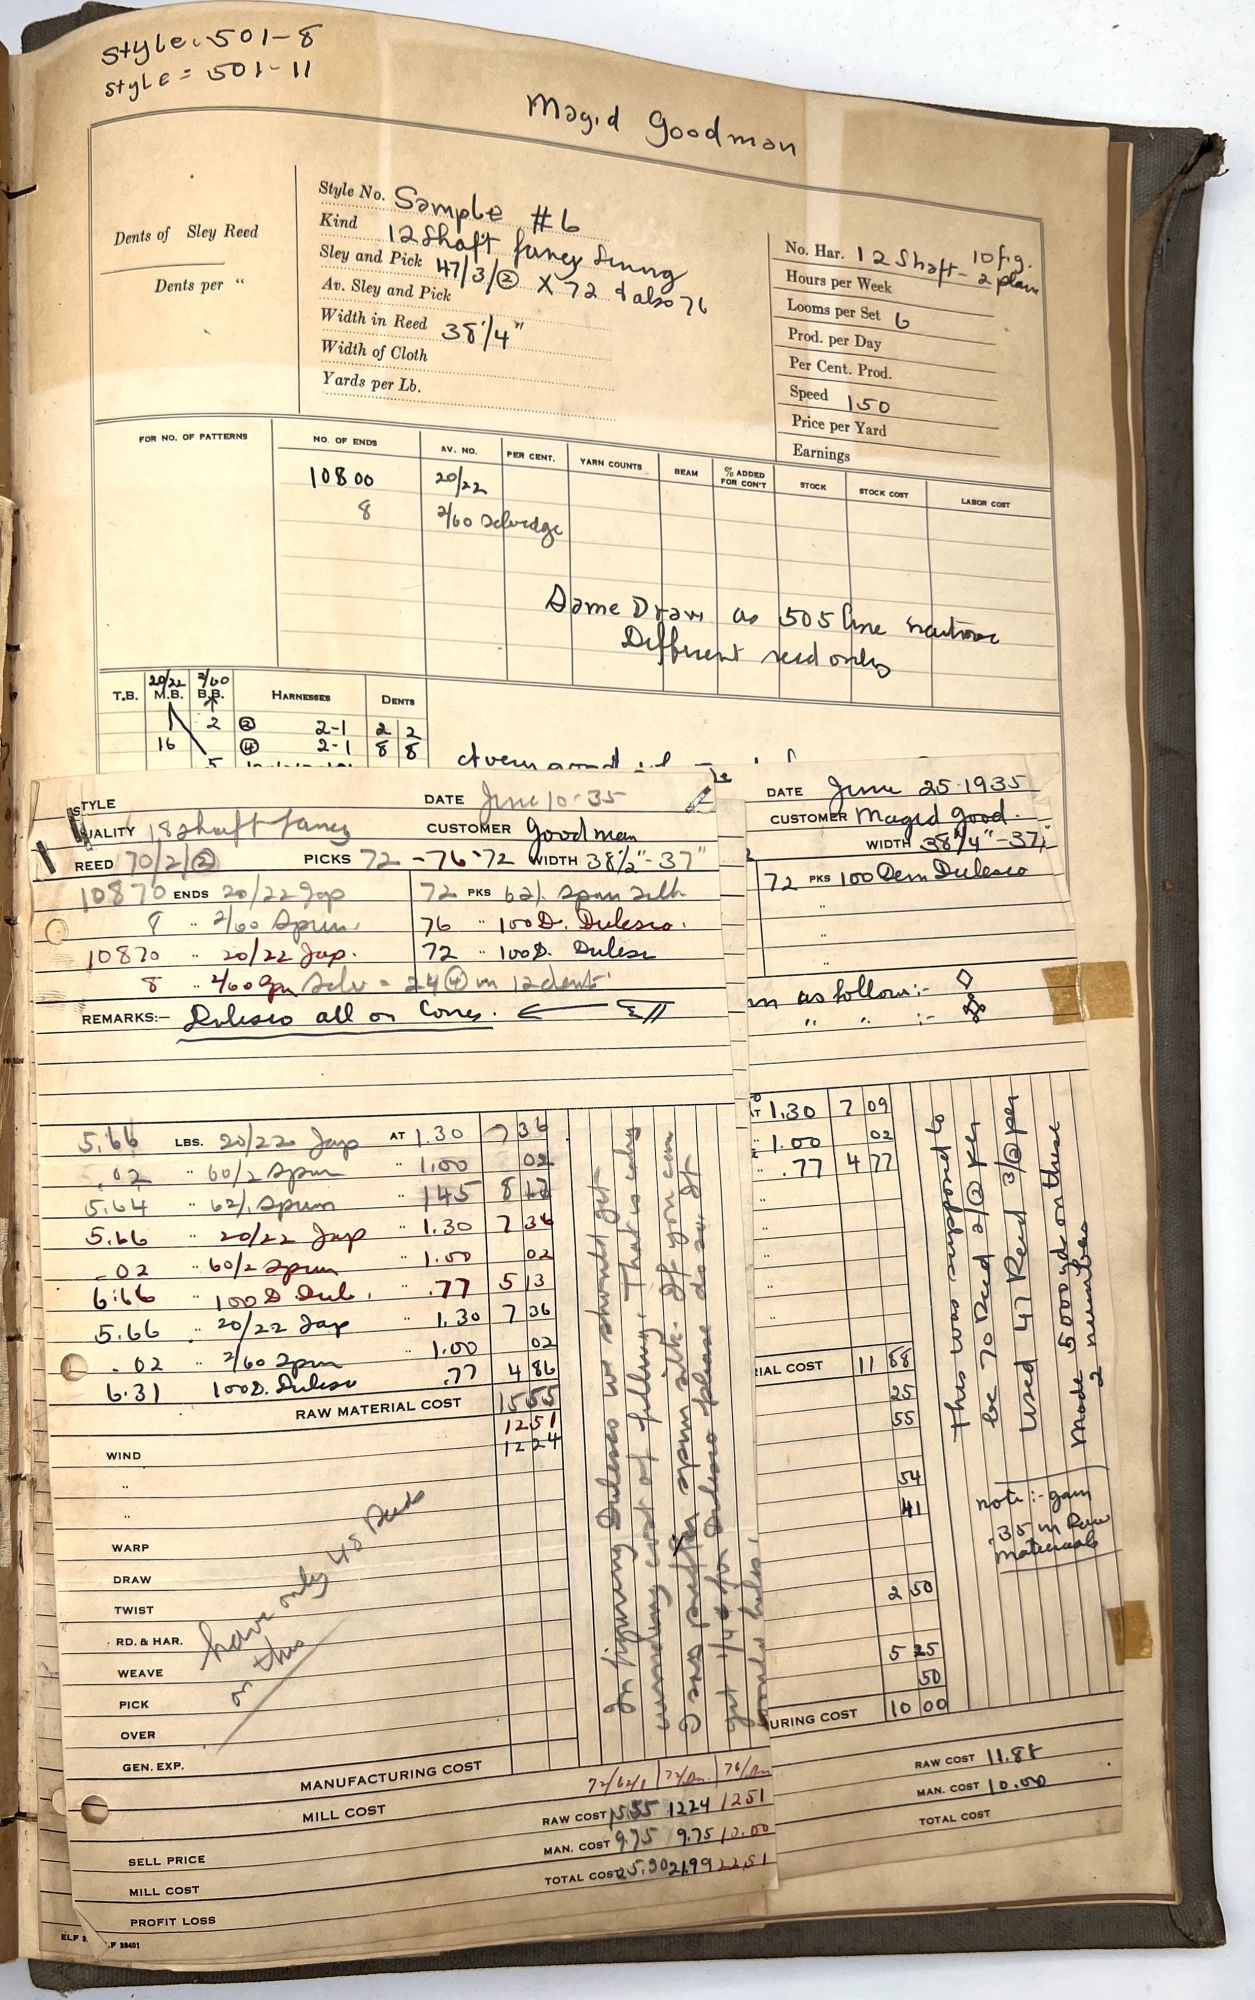 Style. 501-8
Style = 501-11
Magid Goodman
Dents of Sley Reed
Dents per "
Style No. Sample #6
Kind 12 Shaft fancy
Sley and Pick 47/3/② X 72 & also 76
Av. Sley and Pick
Width in Reed 38 1/4"
Width of Cloth
Yards per Lb.
No. Har. 12 Shaft - 10 fig. 2 plain
Hours per Week
Looms per Set 6
Prod. per Day
Per Cent. Prod.
Speed 150
Price per Yard
Earnings
FOR NO. OF PATTERNS NO. OF ENDS AV. NO. PER CENT. YARN COUNTS BEAM % ADDED FOR CON'T STOCK STOCK COST LABOR COST
10800 20/22
8 2/60 Selvedge
Same Draw as 505 line
Different reed only
20/22 2/60
T.B. M.B. B.B. HARNESSES DENTS
1 2 ② 2-1 2 2
16 ④ 2-1 8 8
5
STYLE DATE June 10-35
QUALITY 18 Shaft fancy CUSTOMER Goodman
REED 70/2/② PICKS 72 - 76 - 72 WIDTH 38 1/2" - 37"
10870 ENDS 20/22 Jap 72 PKS 62/1 Spun Silk
8 " 2/60 Spun. 76 " 100 D. Dulesco.
10870 " 20/22 Jap. 72 " 100 D. Dulesco
8 " 2/60 Spn Selv = 24 ④ in 12 dent
REMARKS:- Dulesco all on Cones.
5.66 LBS. 20/22 Jap AT 1.30 7 36
.02 " 60/2 Spun " 1.00 02
5.64 " 62/1 Spun " 145 8 17
5.66 " 20/22 Jap " 1.30 7 36
.02 " 60/2 Spun " 1.00 02
6.66 " 100 D Dul. " .77 5 13
5.66 " 20/22 Jap " 1.30 7 36
.02 " 2/60 Spun 1.00 02
6.31 100 D. Dulesco .77 4 86
RAW MATERIAL COST 15 55
12 51
12 24
WIND
"
"
WARP
DRAW
TWIST
RD. & HAR.
WEAVE
PICK
OVER
GEN. EXP.
have only 48 Reeds
on this
In figuring Dulesco we should get
winding cost of filling. That is why
I say prefer spun silk. If you can
get 1/4 ¢ for Dulesco please do so. It
would help.
MANUFACTURING COST
MILL COST
72/62/1 72/Du. 76/Du
RAW COST 15.55 1224 1251
MAN. COST 9.75 9.75 10.00
TOTAL COST 25.30 21.99 22.51
SELL PRICE
MILL COST
PROFIT LOSS
DATE June 25-1935
CUSTOMER Magid Good.
WIDTH 38 1/4" - 37"
72 PKS 100 Den Dulesco
as follow:-
" " :-
AT 1.30 7 09
" 1.00 02
" .77 4 77
RIAL COST 11 88
25
55
54
41
2 50
5 25
50
URING COST 10 00
This was supposed to
be 70 Reed 2/② per
Used 47 Reed 3/② per
Made 5000 yd on these
2 numbers
note:- gain
.35 in Raw
Materials
RAW COST 11.88
MAN. COST 10.00
TOTAL COST